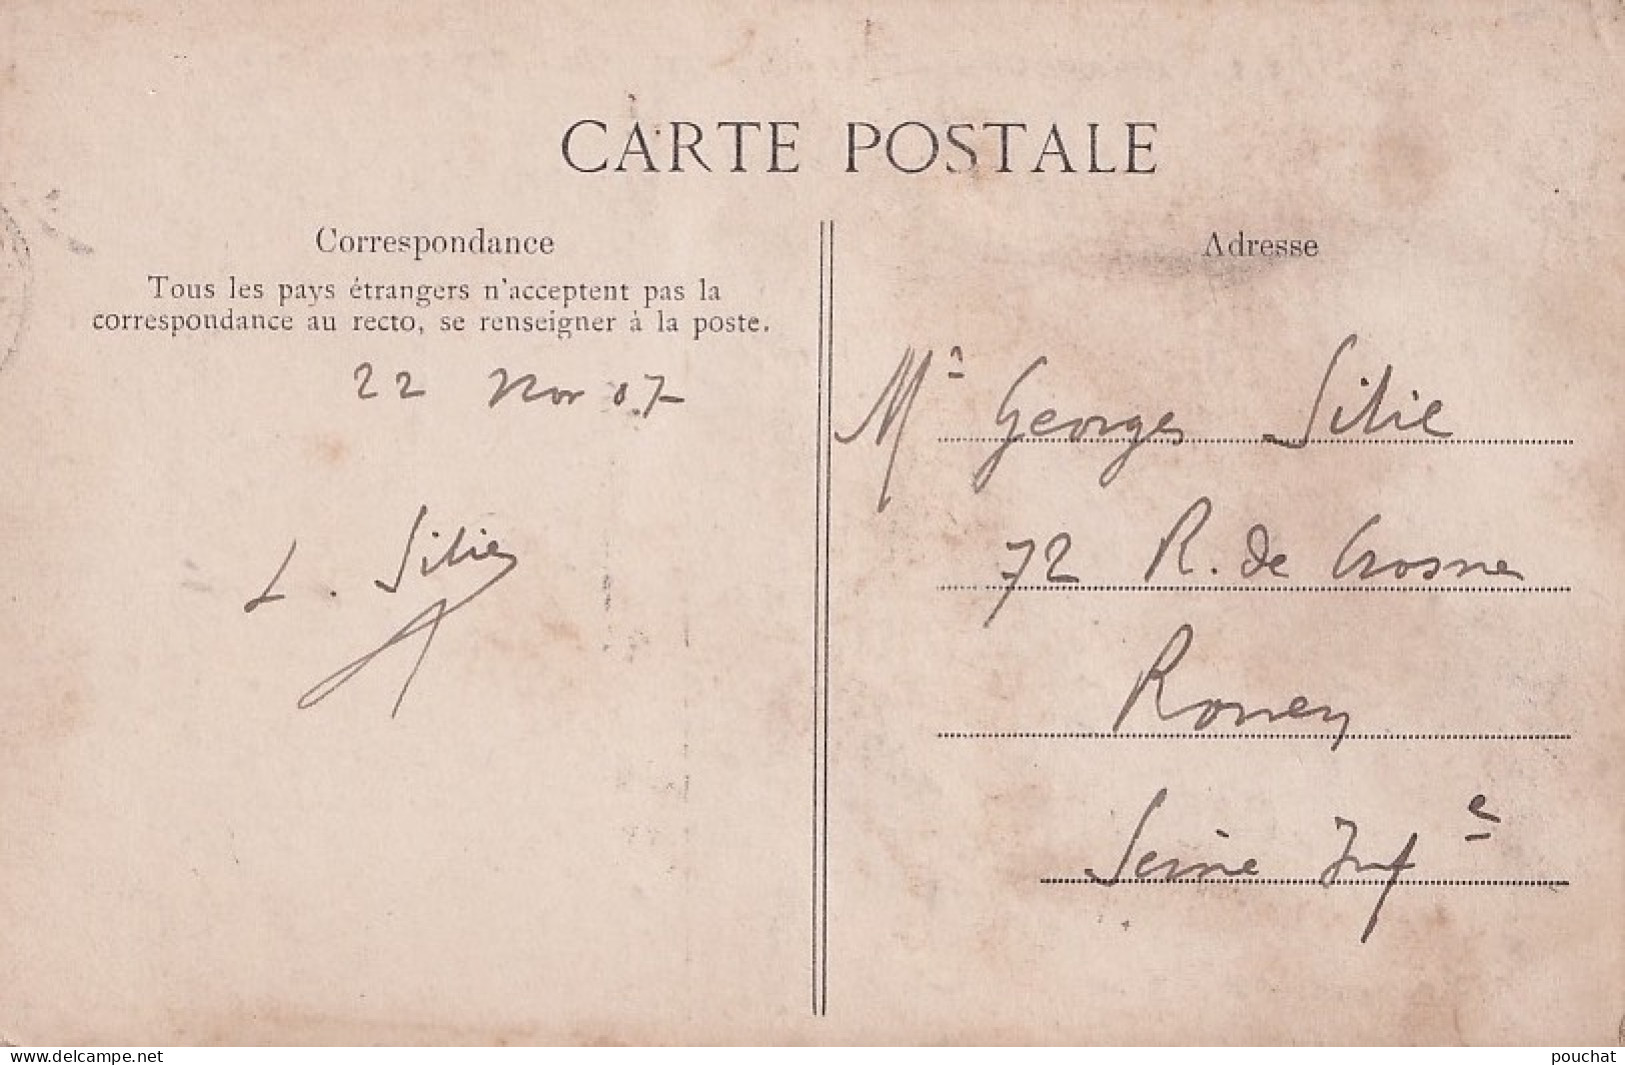 CARTE POSTALE
Correspondance
Tous les pays étrangers n'acceptent pas la
correspondance au recto, se renseigner à la poste.
22 Nov 07
L. Silie
Adresse
Mr Georges Silie
72 R. de Crosne
Rouen
Seine Infe
www.delcampe.net
pouchat